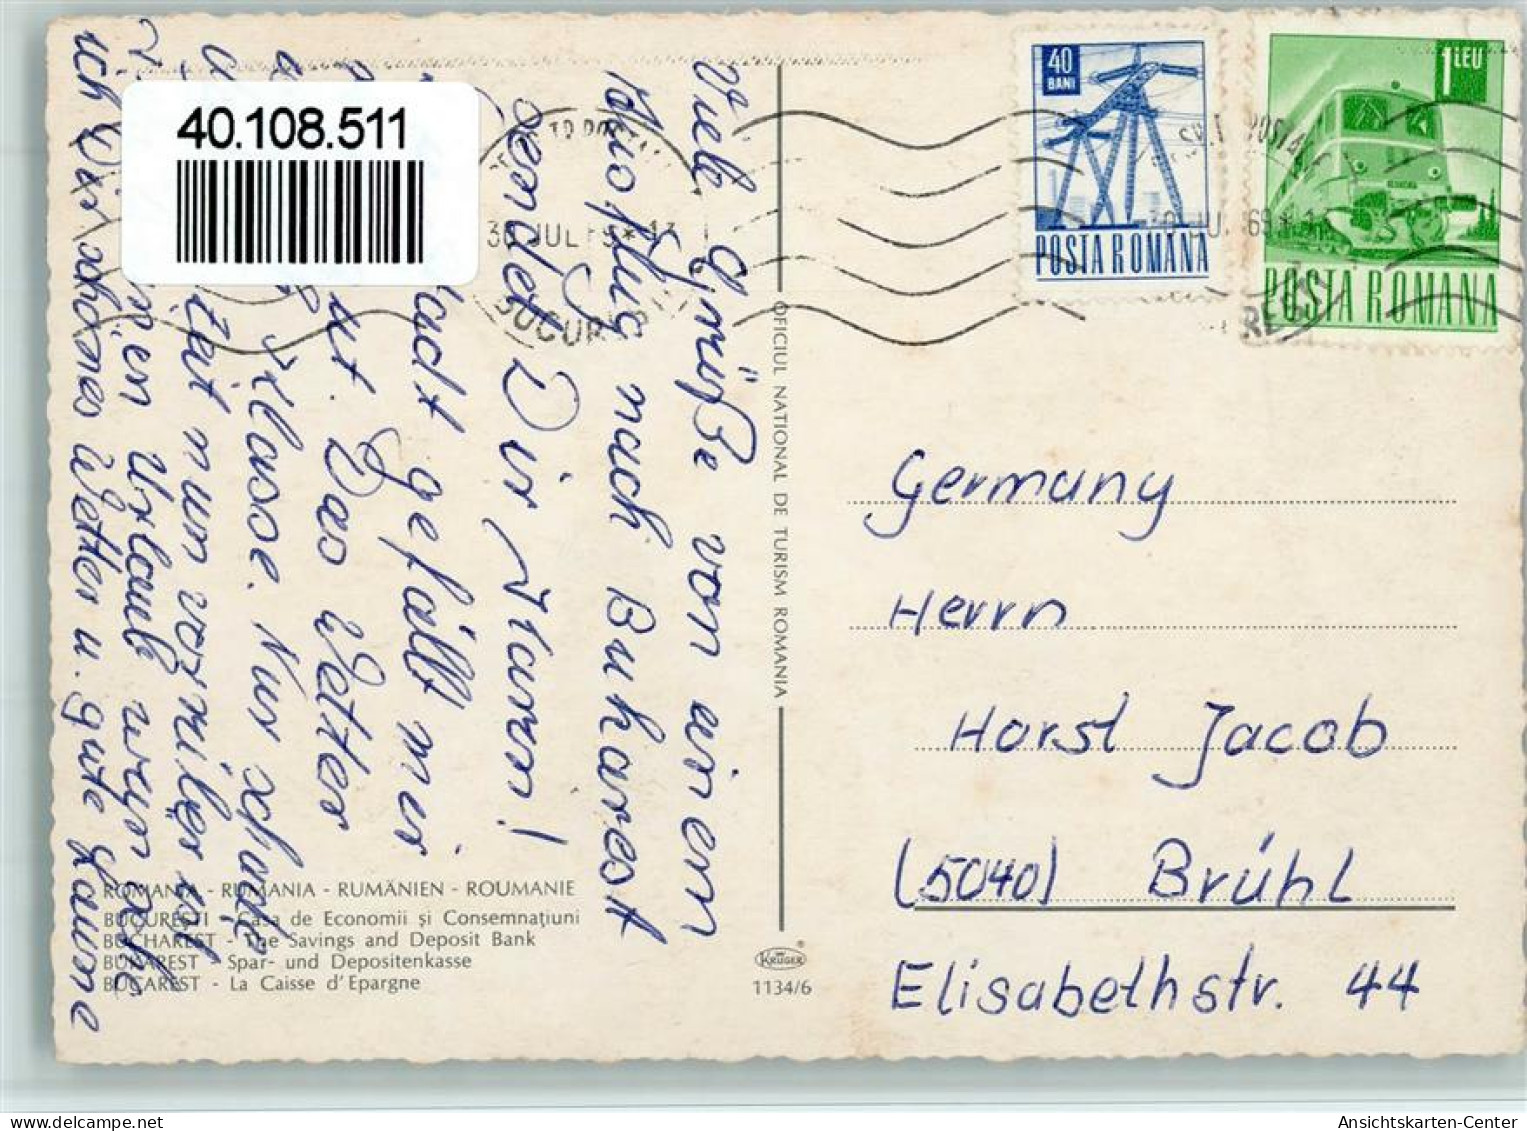 40.108.511
40 BANI
POSTA ROMANA
1 LEU
POSTA ROMANA
30 JUL
BUCUR
Viele Grüße von einem
Ausflug nach Bukarest
sendet Dir Karin!
gefällt mir
Das Wetter
Klasse. Nur schade
Zeit nun vorüber ist
Urlaub
ich Dir schönes Wetter u. gute Laune
OFICIUL NATIONAL DE TURISM ROMANIA
Germany
Herrn
Horst Jacob
(5040) Brühl
Elisabethstr. 44
ROMANIA - RUMANIA - RUMÄNIEN - ROUMANIE
BUCUREŞTI - Casa de Economii şi Consemnaţiuni
BUCHAREST - The Savings and Deposit Bank
BUKAREST - Spar- und Depositenkasse
BUCAREST - La Caisse d'Epargne
KRÜGER
1134/6
Ansichtskarten-Center